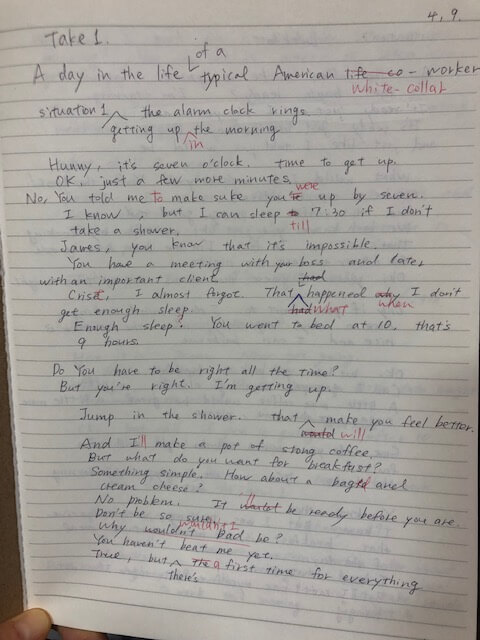 4, 9.
Take 1.
of a
A day in the life typical American life co - worker
white-collar
situation 1 the alarm clock rings
getting up the morning
in
Hunny, it's seven o'clock. time to get up.
OK, just a few more minutes.
were
No, You told me To make suke you're up by seven.
I know, but I can sleep to 7:30 if I don't
till
take a shower.
James, you know that it's impossible.
You have a meeting with your boss and later
with an important client
had
Crist, I almost forgot. That happened why I don't
had what when
get enough sleep.
Enough sleep? You went to bed at 10, that's
9 hours.
Do You have to be right all the time?
But you're right. I'm getting up.
Jump in the shower. that make you feel better.
would will
And I'll make a pot of stong coffee.
But what do you want for breakfast?
Something simple. How about a bagel and
cream cheese?
No problem. It'll would be ready before you are.
Don't be so sure.
wouldn't I
Why wouldn't bad be?
You haven't beat me yet.
True, but the a first time for everything
there's